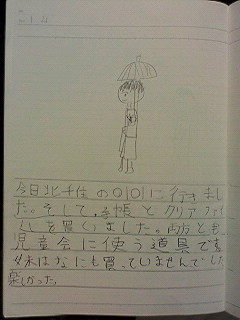 今日北千住の〇|〇|に行きまし
た。そして、手帳とクリアファイ
ルを買いました。両方とも
児童会に使う道具です
外はなにも買っていませんでした
楽しかった。